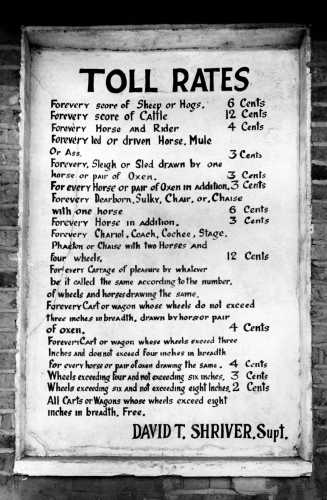 TOLL RATES
Forevery score of Sheep or Hogs. 6 Cents
Forevery score of Cattle 12 Cents
Forevery Horse and Rider 4 Cents
Forevery led or driven Horse, Mule
Or Ass. 3 Cents
Forevery, Sleigh or Sled drawn by one
horse or pair of Oxen. 3 Cents
For every Horse or pair of Oxen in addition. 3 Cents
Forevery Dearborn, Sulky, Chair, or, Chaise
with one horse 6 Cents
Forevery Horse in addition. 3 Cents
Forevery Chariol, Coach, Cochee, Stage,
Phaeton or Chaise with two Horses and
four wheels. 12 Cents
For/every Carrage of pleasure by whatever
be it called the same according to the number,
of wheels and horses drawing the same.
Forevery Cart or wagon whose wheels do not exceed
three inches in breadth, drawn by hors or pair
of oxen. 4 Cents
Forevery Cart or wagon whose wheels exceed three
Inches and do not exceed four inches in breadth
For every horse or pair of oxen drawing the same. 4 Cents
Wheels exceeding four and not exceeding six inches. 3 Cents
Wheels exceeding six and not exceeding eight Inches. 2 Cents
All Carts or Wagons whose wheels exceed eight
inches in breadth, Free.
DAVID T. SHRIVER, Supt.